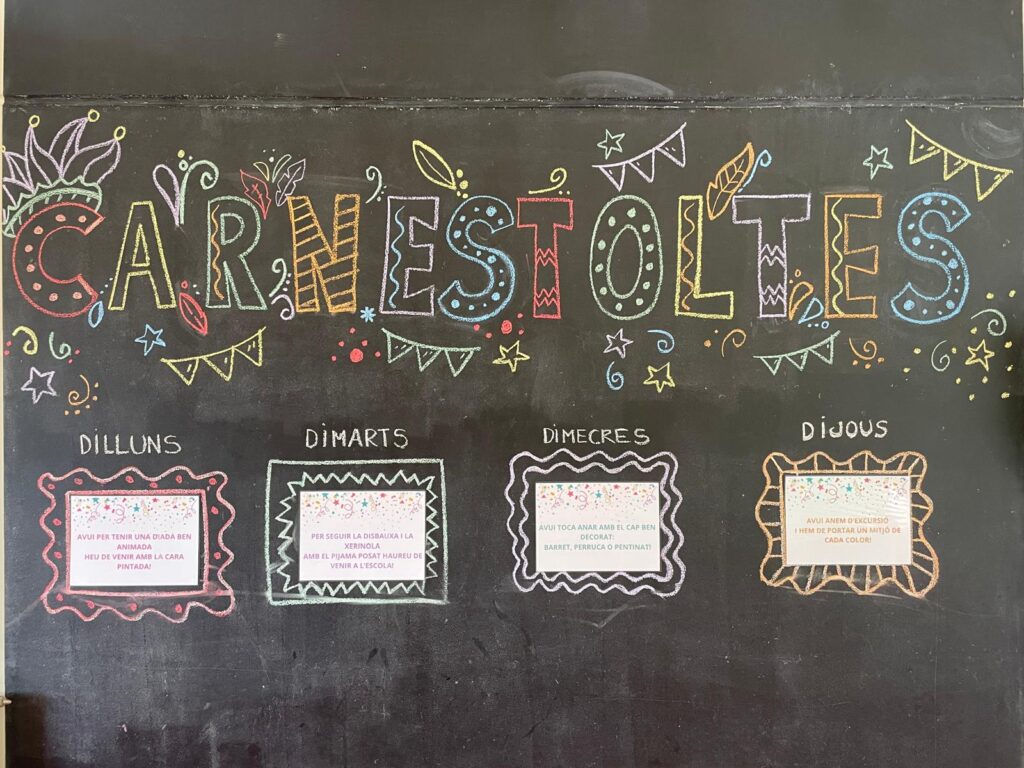 CARNESTOLTES
DILLUNS
AVUI PER TENIR UNA DIADA BEN
ANIMADA
HEU DE VENIR AMB LA CARA
PINTADA!
DIMARTS
PER SEGUIR LA DISBAUXA I LA
XERINOLA
AMB EL PIJAMA POSAT HAUREU DE
VENIR A L'ESCOLA!
DIMECRES
AVUI TOCA ANAR AMB EL CAP BEN
DECORAT:
BARRET, PERRUCA O PENTINAT!
DIJOUS
AVUI ANEM D'EXCURSIÓ
I HEM DE PORTAR UN MITJÓ DE
CADA COLOR!